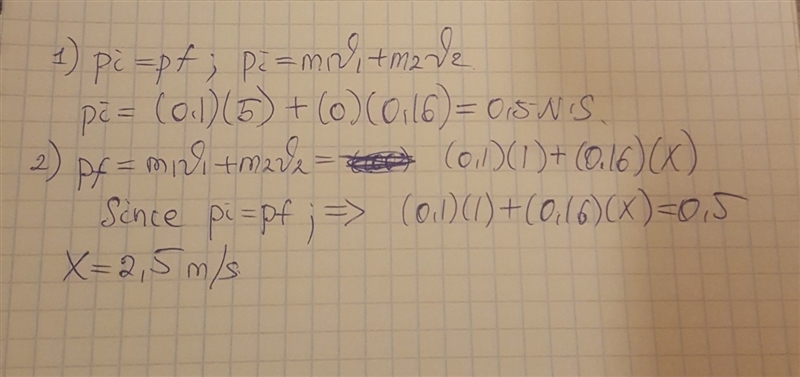 1) pi = pf ; pi = m₁ϑ₁ + m₂ϑ₂.
pi = (0.1)(5) + (0)(0,16) = 0,5 N·S.
2) pf = m₁ϑ₁ + m₂ϑ₂ = (0,1)(1) + (0.16)(X)
Since pi = pf ; => (0,1)(1) + (0,16)(X) = 0,5
X = 2,5 m/s